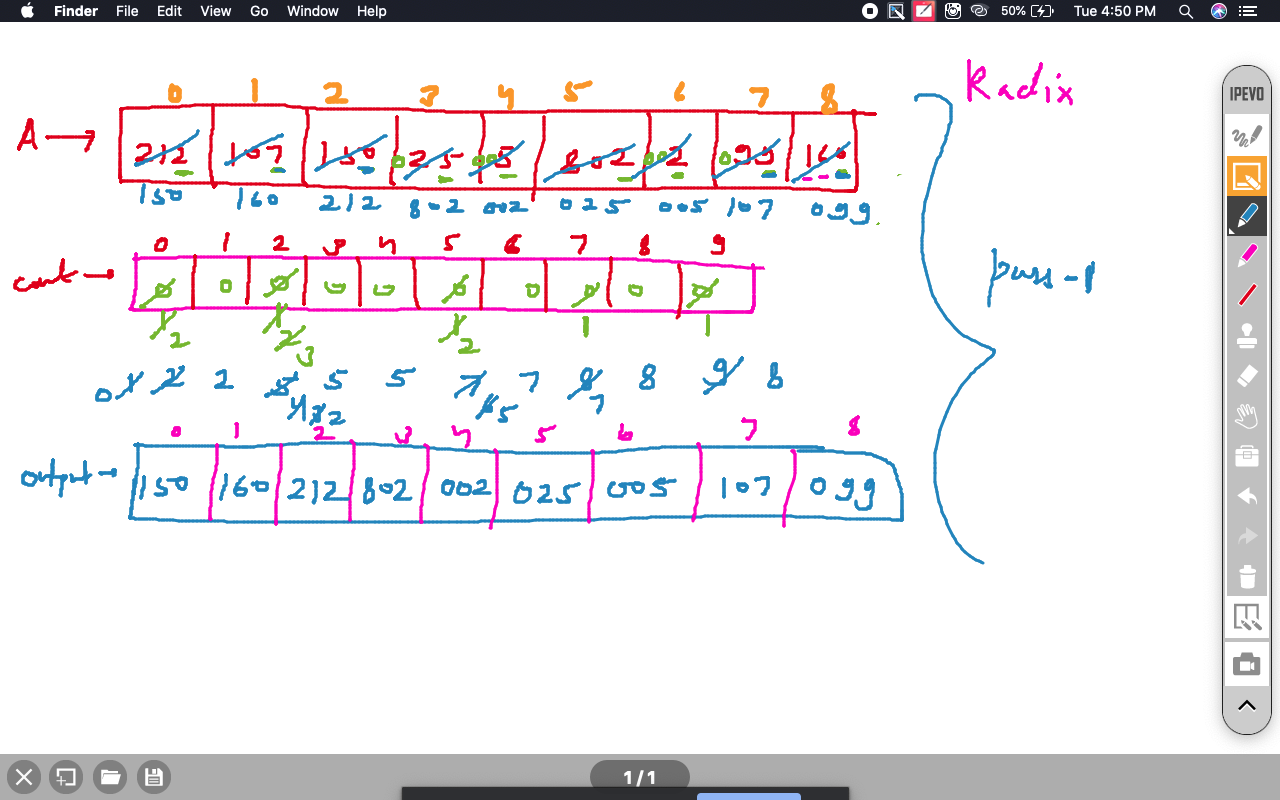 Finder File Edit View Go Window Help 50% Tue 4:50 PM
Radix
IPEVO
0 1 2 3 4 5 6 7 8
A → 212 107 150 025 005 802 002 099 160
150 160 212 802 002 025 005 107 099
0 1 2 3 4 5 6 7 8 9
count → 0 0 0 0 0 0 0 0 0 0
1 2 1 2 3 1 2 1 1
pass-1
0 1 2 2 5 5 5 7 7 8 8 9 8
4 3 2 6 5 7
0 1 2 3 4 5 6 7 8
output → 150 160 212 802 002 025 005 107 099
1/1